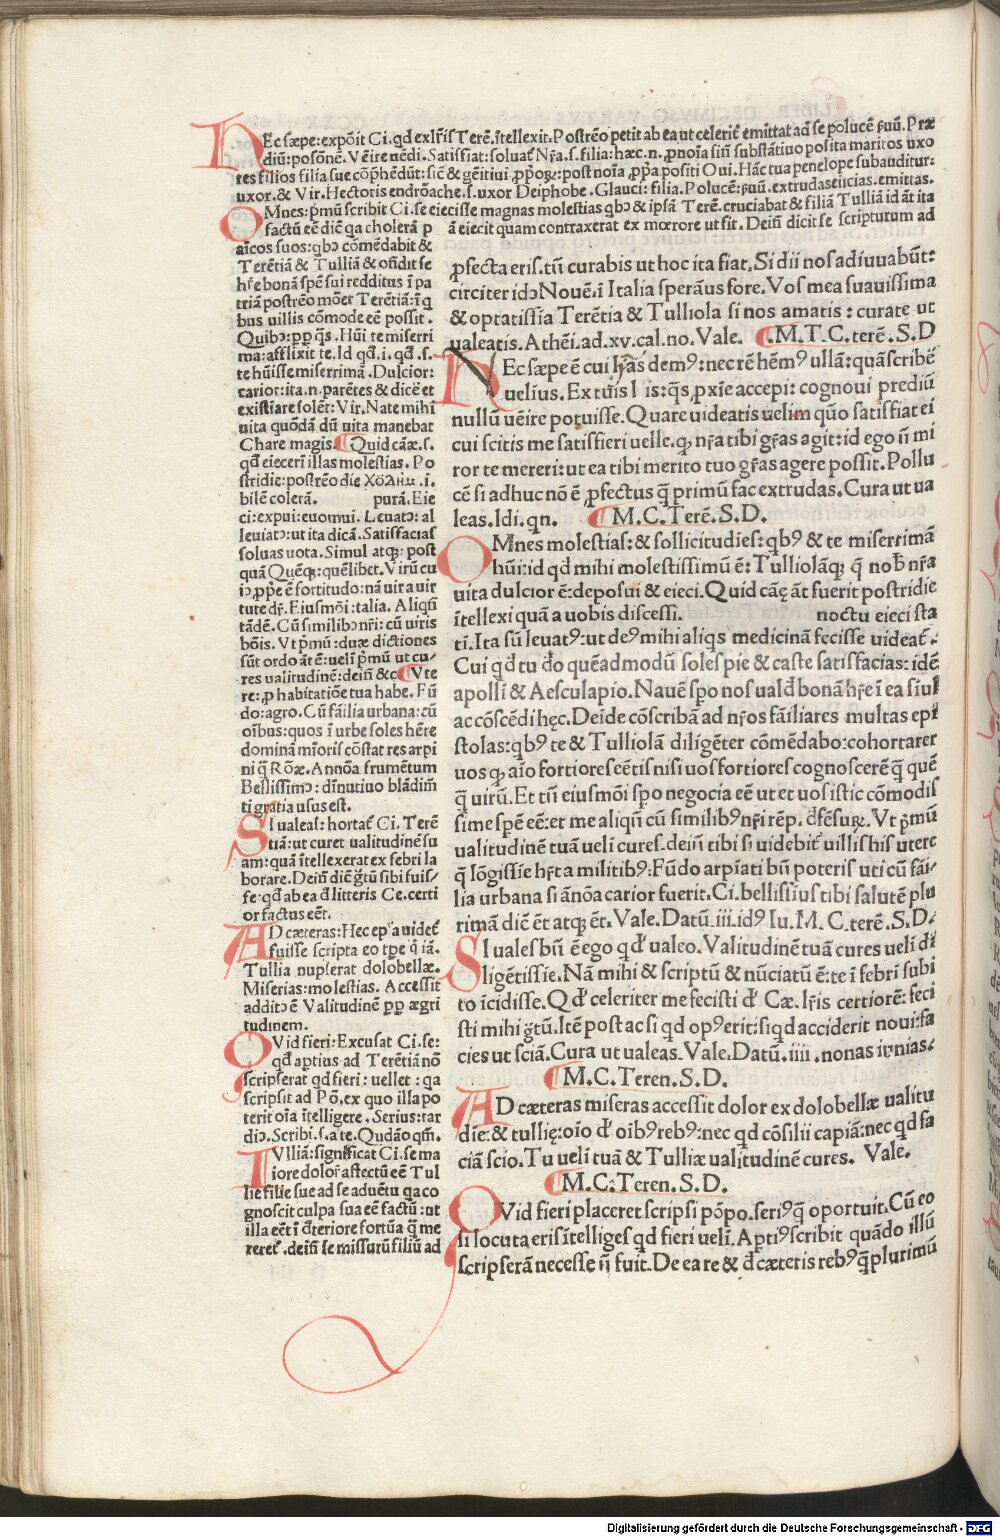 HEc sæpe: expõit Ci. qd exlr̃is Terẽ. ĩtellexit. Postrẽo petit ab ea ut celerit̃ emittat ad se polucẽ ꝑuũ. Præ
diũ: possõnẽ. Vẽire uẽdi. Satisfiat: soluat̃ Nr̃a. s. filia: hæc. n. ꝓnoĩa siñ substãtiuo posita maritos uxo
res filios filia sue cõp̃hẽdũt: sic̃ & gẽitiui ꝓp̃oꝝ: post noĩa ꝓp̃a positi Oui. Hãc tua penelope subauditur:
uxor. & Vir. Hectoris endrõache. s. uxor Deiphobe. Glauci: filia. Polucẽ: ꝑuũ. extrudas eiicias. emittas.
OMnes: p̃mũ scribit Ci. se eiecisse magnas molestias qbꝰ & ipsã Terẽ. cruciabat & filiã Tulliã id ãt ita
factũ eẽ dic̃ qa cholerã p
ã eiecit quam contraxerat ex mœrore ut fit. Deiñ dicit se scripturum ad
aĩcos suos: qbꝰ cõmẽdabit &
Terẽtiã & Tulliã & oñdit se
hr̃e bonã spẽ sui redditus ĩ pa
triã postrẽo mõet Terẽtiã: ĩ q
bus uillis cõmode eẽ possit.
Quibꝰ: ꝓp q̃s. Hũi te miserri
ma: afflixit te. Id qd̃. i. qd̃. s.
te hũisse miserrimã. Dulcior:
carior: ita. n. parẽtes & dicẽ et
existiare solẽt: Vir. Nate mihi
uita quõdã dũ uita manebat
Chare magis. Quid cãæ. s.
qd̃ eiecerĩ illas molestias. Po
stridie: postrẽo die χολην. i.
bilẽ colerã. purã. Eie
ci: expui: euomui. Leuatꝰ: al
leuiatꝰ: ut ita dicã. Satisfacias
soluas uota. Simul atqꝫ: post
quã Quẽqꝫ: quẽlibet. Virũ cu
iꝰ ꝓp̃e ẽ fortitudo: nã uir a uir
tute dr̃. Eiusmõi: talia. Aliqñ
tãdẽ. Cũ similibꝰ nr̃i: cũ uiris
bõis. Vt p̃mũ: duæ dictiones
sũt ordo ãt ẽ: ueli p̃mũ ut cu
res ualitudinẽ: deiñ &c. Vte
re: ꝓ habitatiõe tua habe. Fũ
do: agro. Cũ fãilia urbana: cũ
oĩbus: quos ĩ urbe soles hẽre
dominã mĩoris cõstat res arpi
ni q̃ Rõæ. Annõa frumẽtum
Bellissimꝰ: dĩnutiuo blãdim̃
ti gratia usus est.
SI ualeas: hortat̃ Ci. Terẽ
tiã: ut curet ualitudinẽ su
am: quã ĩtellexerat ex febri la
borare. Deiñ dic̃ g̃tũ sibi fuis
se qd̃ ab ea d̃ litteris Ce. certi
or factus eẽt.
AD cæteras: Hec ep̃a uidet̃
fuisse scripta eo tp̃e q̃ iã.
Tullia nupserat dolobellæ.
Miserias: molestias. Accessit
additꝰ ẽ Valitudinẽ ꝓp ægri
tudinem.
QVid fieri: Excusat Ci. se:
qd̃ aptius ad Terẽtiã nõ
scripserat qd fieri: uellet: qa
scripsit ad Põ. ex quo illa po
terit oĩa ĩtelligere. Serius: tar
diꝰ. Scribi. s. a te. Qudão qm̃.
TVlliã: significat Ci. se ma
iore dolor̃ affectũ eẽ Tul
lie filie sue ad se aduẽtu qa co
gnoscit culpa sua eẽ factũ: ut
illa eẽt ĩ d̃teriore fortũa q̃ me
reret̃. deiñ se missurũ filiũ ad
ꝓfecta eris. tũ curabis ut hoc ita fiat. Si dii nos adiuuabũt:
circiter idꝰ Nouẽ. ĩ Italia sperãus fore. Vos mea suauissima
& optatissĩa Terẽtia & Tulliola si nos amatis: curate ut
ualeatis. Athẽi. ad. xv. cal. no. Vale. M. T. C. terẽ. S. D
NEc sæpe ẽ cui l̃r̃as demꝰ: nec rẽ hẽmꝰ ullã: quã scribẽ
uelius. Ex tuis l is: q̃s ꝓxĩe accepi: cognoui prediũ
nullũ uẽire potuisse. Quare uideatis uelim quõ satisfiat ei
cui scitis me satisfieri uelle. qꝫ nr̃a tibi gr̃as agit: id ego ñ mi
ror te mereri: ut ea tibi merito tuo gr̃as agere possit. Pollu
cẽ si adhuc nõ ẽ ꝓfectus q̃ primũ fac extrudas. Cura ut ua
leas. Idi. qn. M. C. Terẽ. S. D.
OMnes molestias: & sollicitudĩes: qbꝰ & te miserrimã
hũi: id qd mihi molestissimũ ẽ: Tulliolãqꝫ q̃ nob̃ nr̃a
uita dulcior ẽ: deposui & eieci. Quid cãę ãt fuerit postridie
ĩtellexi quã a uobis discessi. noctu eieci sta
tĩ. Ita sũ leuatꝰ: ut deꝰ mihi aliqs medicinã fecisse uideat̃.
Cui qd̃ tu d̃o quẽadmodũ soles pie & caste satisfacias: idẽ
apollĩ & Aesculapio. Nauẽ sp̃o nos uald̃ bonã hr̃e ĩ ea siul
ac cõscẽdi hęc. Deide cõscribã ad nr̃os fãiliares multas epĩ
stolas: qbꝰ te & Tulliolã diligẽter cõmẽdabo: cohortarer
uos qꝫ aĩo fortiores eẽtis nisi uos fortiores cognoscerẽ q̃ quẽ
q̃ uirũ. Et tñ eiusmõi sp̃o negocia eẽ ut et uos istic cõmodis
sime spẽ eẽ: et me aliqñ cũ similibꝰ nr̃i rẽp. d̃fẽsuꝝ. Vt p̃mũ
ualitudinẽ tuã ueli cures. deiñ tibi si uidebit̃ uillis his utere
q̃ lõgissĩe hr̃t a militibꝰ. Fũdo arpĩati bñ poteris uti cũ fãi
lia urbana si ãnõa carior fuerit. Ci. bellissĩus tibi salutẽ plu
rimã dic̃ ẽt atqꝫ ẽt. Vale. Datũ. iii. idꝰ Iu. M. C. terẽ. S. D.
SI uales bñ ẽ ego qd̃ ualeo. Valitudinẽ tuã cures ueli di
ligẽtissĩe. Nã mihi & scriptũ & nũciatũ ẽ: te ĩ febrĩ subi
to ĩcidisse. Qd̃ celeriter me fecisti d̃ Cæ. lr̃is certiorẽ: feci
sti mihi g̃tũ. Itẽ post ac si qd opꝰ erit: siqd acciderit noui: fa
cies ut sciã. Cura ut ualeas. Vale. Datũ. iiii. nonas iunias.
M. C. Teren. S. D.
AD cæteras miseras accessit dolor ex dolobellæ ualitu
die: & tullię: oĩo d̃ oibꝰ rebꝰ: nec qd cõsilii capiã: nec qd fa
ciã scio. Tu ueli tuã & Tulliæ ualitudinẽ cures. Vale.
M. C. Teren. S. D.
QVid fieri placeret scripsi põpo. seriꝰ q̃ oportuit. Cũ eo
si locuta eris ĩtelliges qd fieri ueli. Aptiꝰ scribit quãdo illũ
scripserã necesse ñ fuit. De ea re & d̃ cæteris rebꝰ q̃ plurimũ
Digitalisierung gefördert durch die Deutsche Forschungsgemeinschaft - DFG